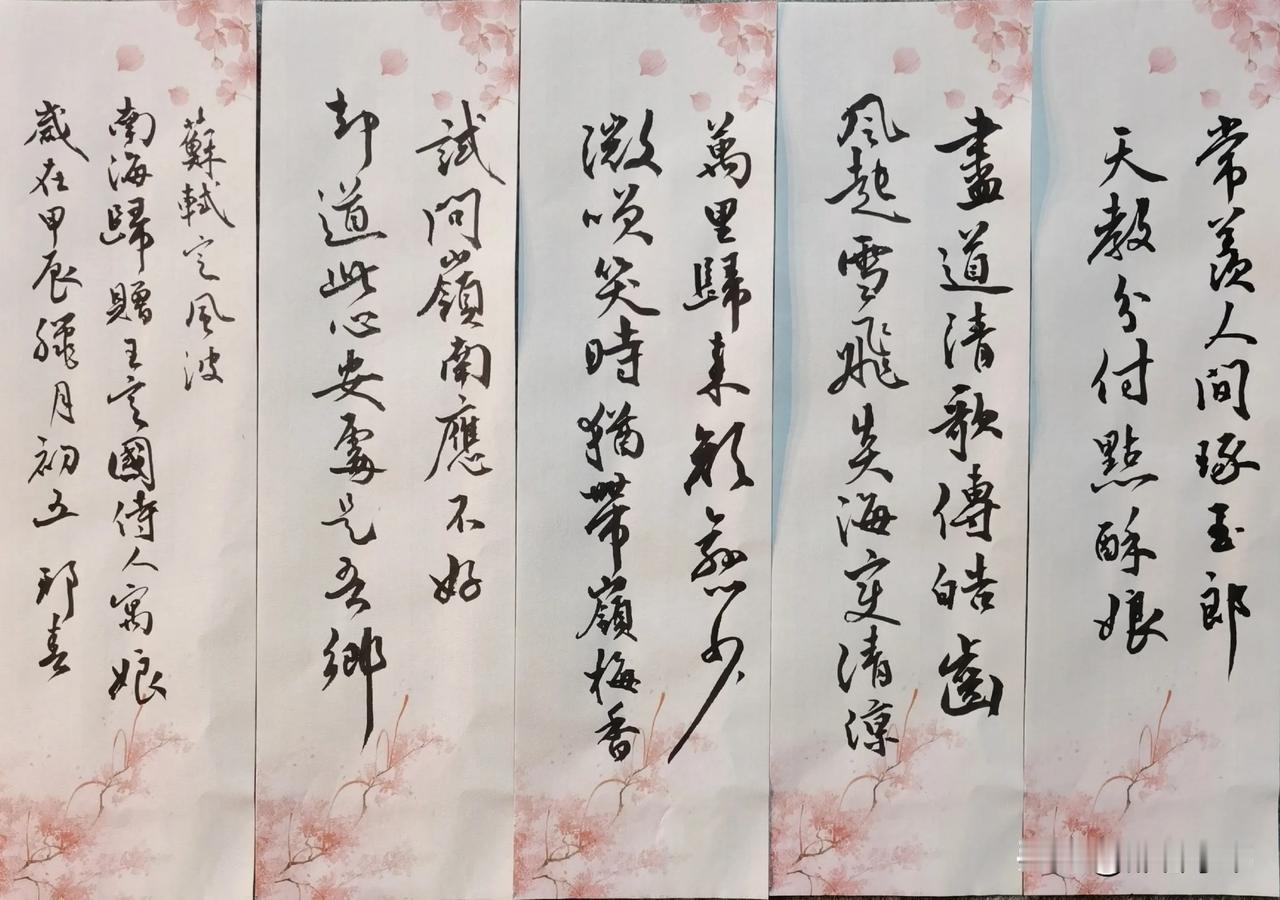 常羨人間琢玉郎
天教分付點酥娘
盡道清歌傳皓齒
風起雪飛炎海變清涼
萬里歸來顏愈少
微咲笑時猶帶嶺梅香
試問嶺南應不好
却道此心安處是吾鄉
蘇軾定風波
南海歸贈王定國侍人寓娘
歲在甲辰臘月初五